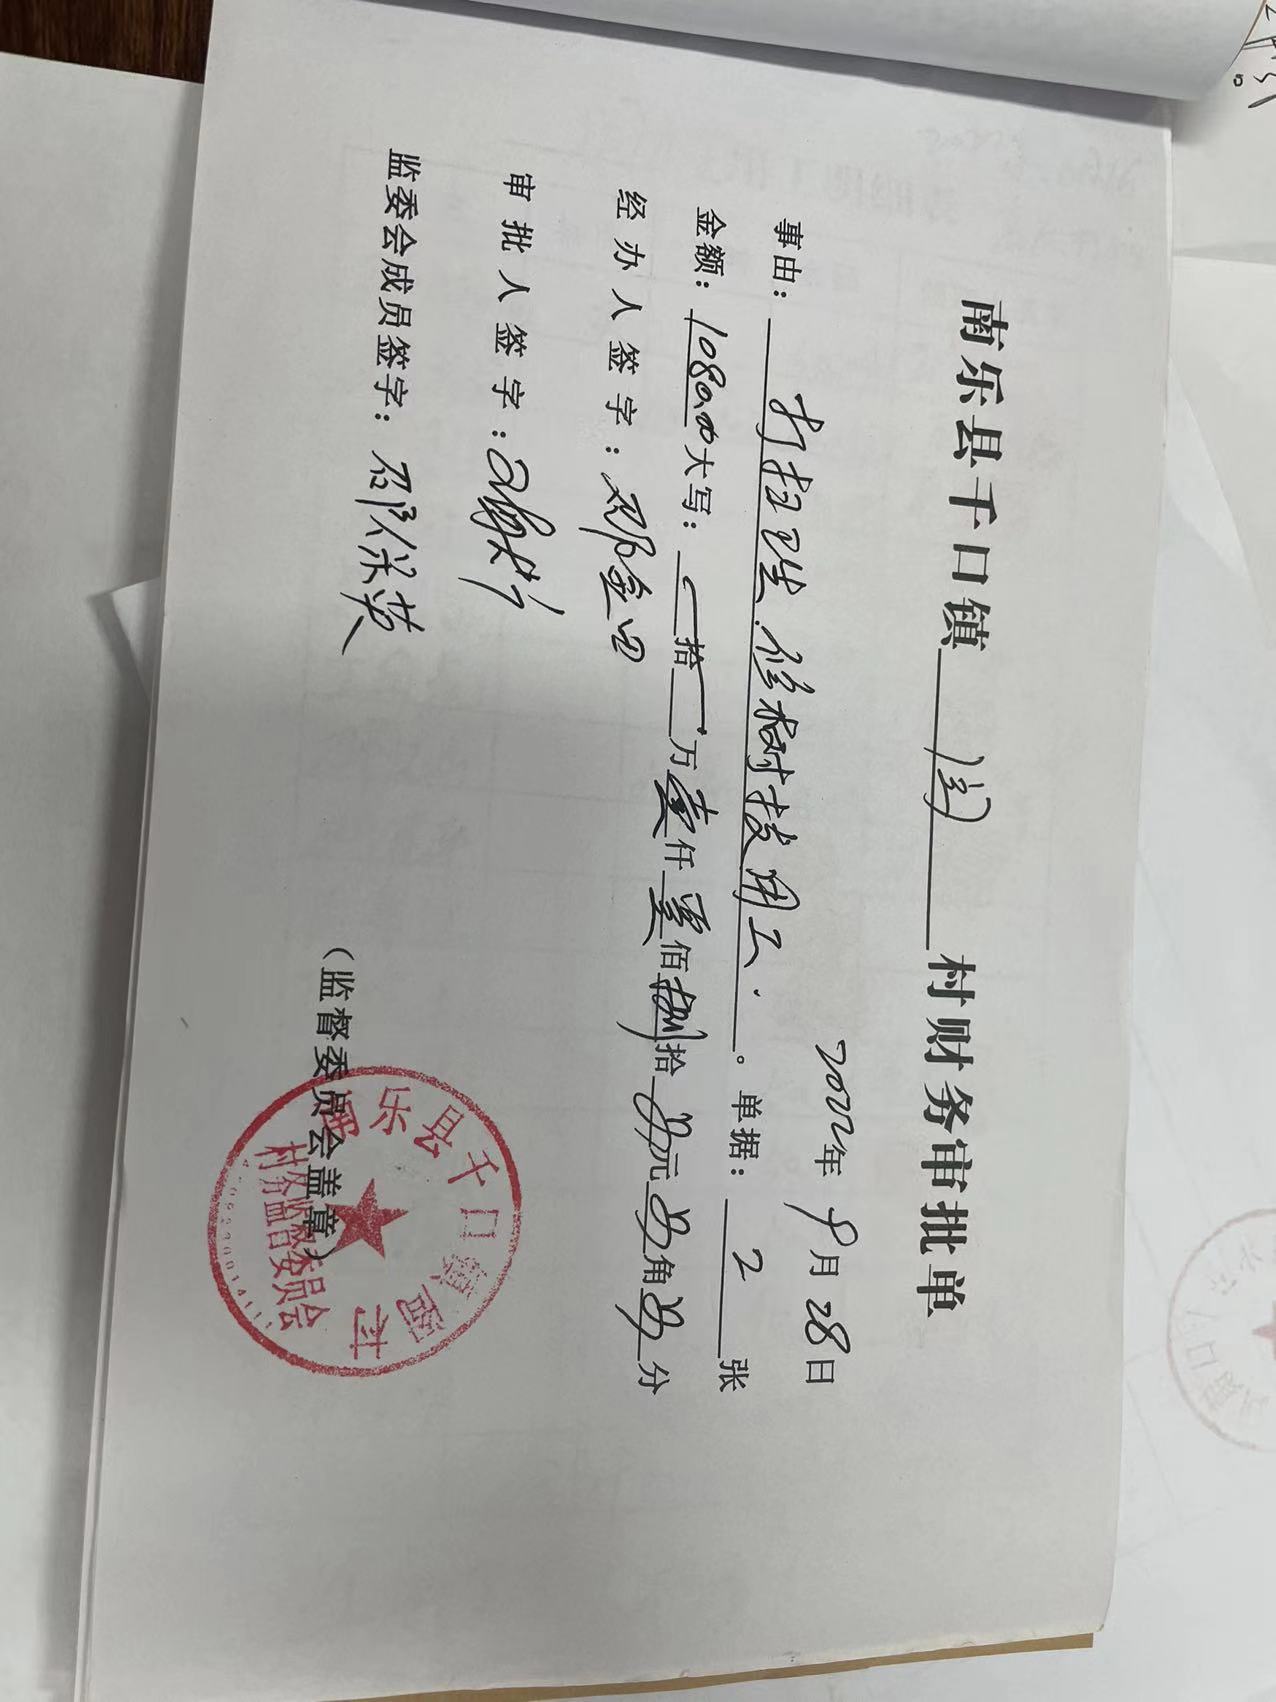 南乐县千口镇 村财务审批单
2022年9月28日
事由：打扫卫生.修树枝用工. 。单据：2张
金额：1080.00大写： 拾 万壹仟零佰捌拾另元另角另分
经办人签字：邓金田
审批人签字：
监委会成员签字：邵保英
（监督委员会盖章）
乐县千口镇 村
村务监督委员会